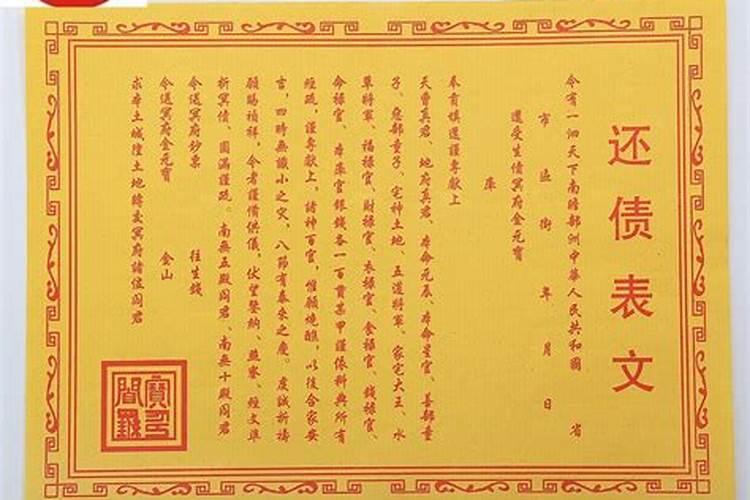 还债表文
今有一泗天下南瞻部洲中華人民共和國 省
市 區 街 年 月 日
還受生債冥府金元寶
庫
奉育填還謹專獻上
天曹真君、地府真君、本命元辰、本命星官、善部童
子、惡部童子、宅神土地、五道將軍、家宅大王、水
草將軍、福祿官、財祿官、衣祿官、食祿官、錢祿官、
命祿官、本庫官銀錢各一百貫某甲謹依科典所有
經疏,謹專獻上,諸神百官,惟願燒醮,以後合家安
言,四時無識小之灾,八節有泰來之慶。虔誠祈禱
願賜禎祥,令者謹備供儀,伏望鑒納、燕寮、經文準
折冥債、圓滿謹疏。南無五殿闾君、南無十殿闾君
令送冥府鈔票 往生錢
令送冥府金元寶 金山
求本土城隍土地轉交冥府諸位闾君